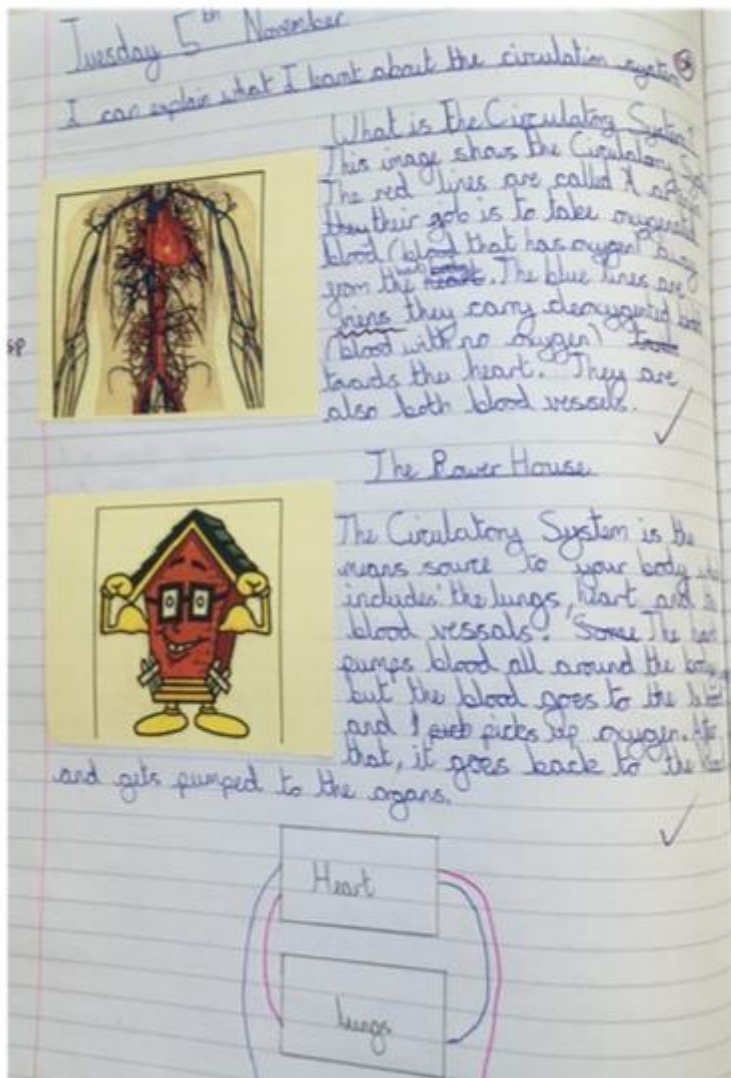 Tuesday 5th November
I can explain what I learnt about the circulation system
What is the Circulatory System?
This image shows the Circulatory
The red lines are called
their job is to take oxygenated
blood (blood that has oxygen) away
from the heart. The blue lines are
viens they carry deoxygented
sp
(blood with no oxygen)
towards the heart. They are
also both blood vessels.
The Power House
The Circulatory System is the
means source to your body
includes the lungs, heart and
blood vessals. Some The
pumps blood all around the body
but the blood goes to the
and picks up oxygen. After
that, it goes back to the
and gets pumped to the organs.
Heart
lungs